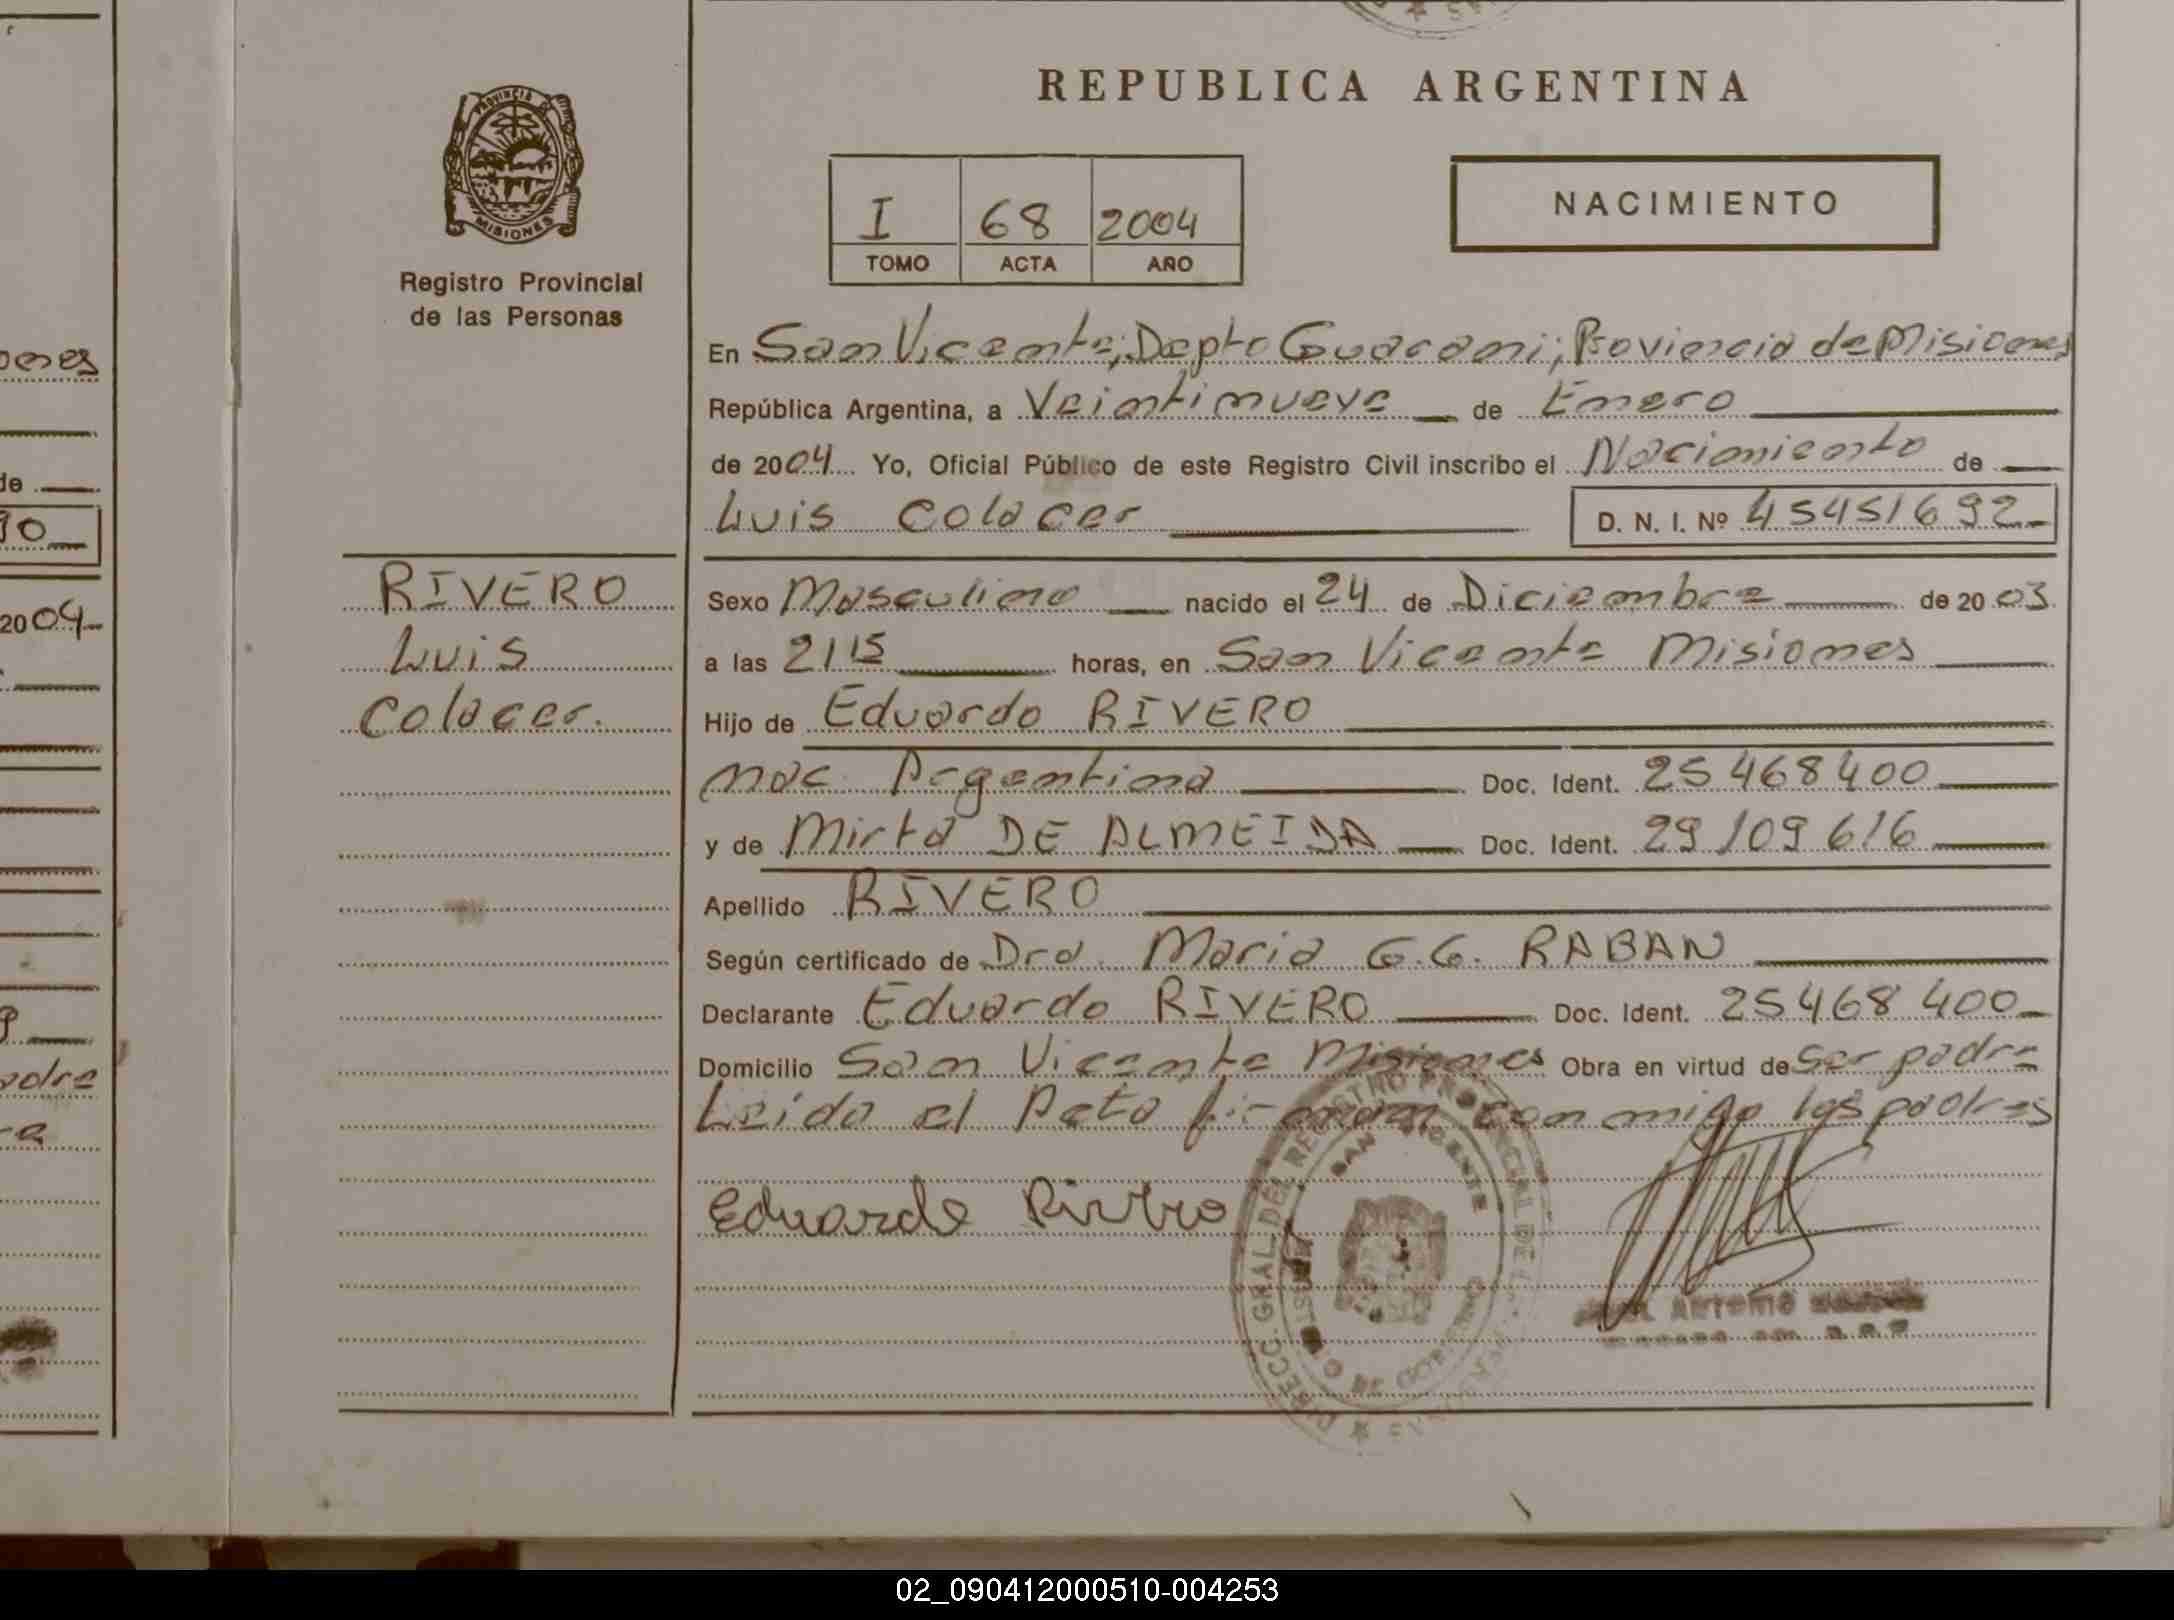 REPUBLICA ARGENTINA
PROVINCIA DE
MISIONES
Registro Provincial
de las Personas
I 68 2004
TOMO ACTA AÑO
NACIMIENTO
En San Vicente; Depto Guarani; Provincia de Misiones
República Argentina, a Veintinueve de Enero
de 2004 Yo, Oficial Público de este Registro Civil inscribo el Nacimiento de
Luis Colacer D. N. I. Nº 45451692
RIVERO
Luis
Colacer.
Sexo Masculino nacido el 24 de Diciembre de 2003
a las 21 15 horas, en San Vicente Misiones
Hijo de Eduardo RIVERO
nac. Argentina Doc. Ident. 25468400
y de Mirta DE ALMEIDA Doc. Ident. 29109616
Apellido RIVERO
Según certificado de Dra. Maria G.G. RABAN
Declarante Eduardo RIVERO Doc. Ident. 25468400
Domicilio San Vicente Misiones Obra en virtud de Ser padre
Leida el Acta firman con migo los padres
Eduardo Rivero
DIRECC. GRAL. DEL REGISTRO PROVINCIAL DE
SAN VICENTE
DE GOBIERNO
ANTONIO
ones
de
90
2004
adre
02_090412000510-004253